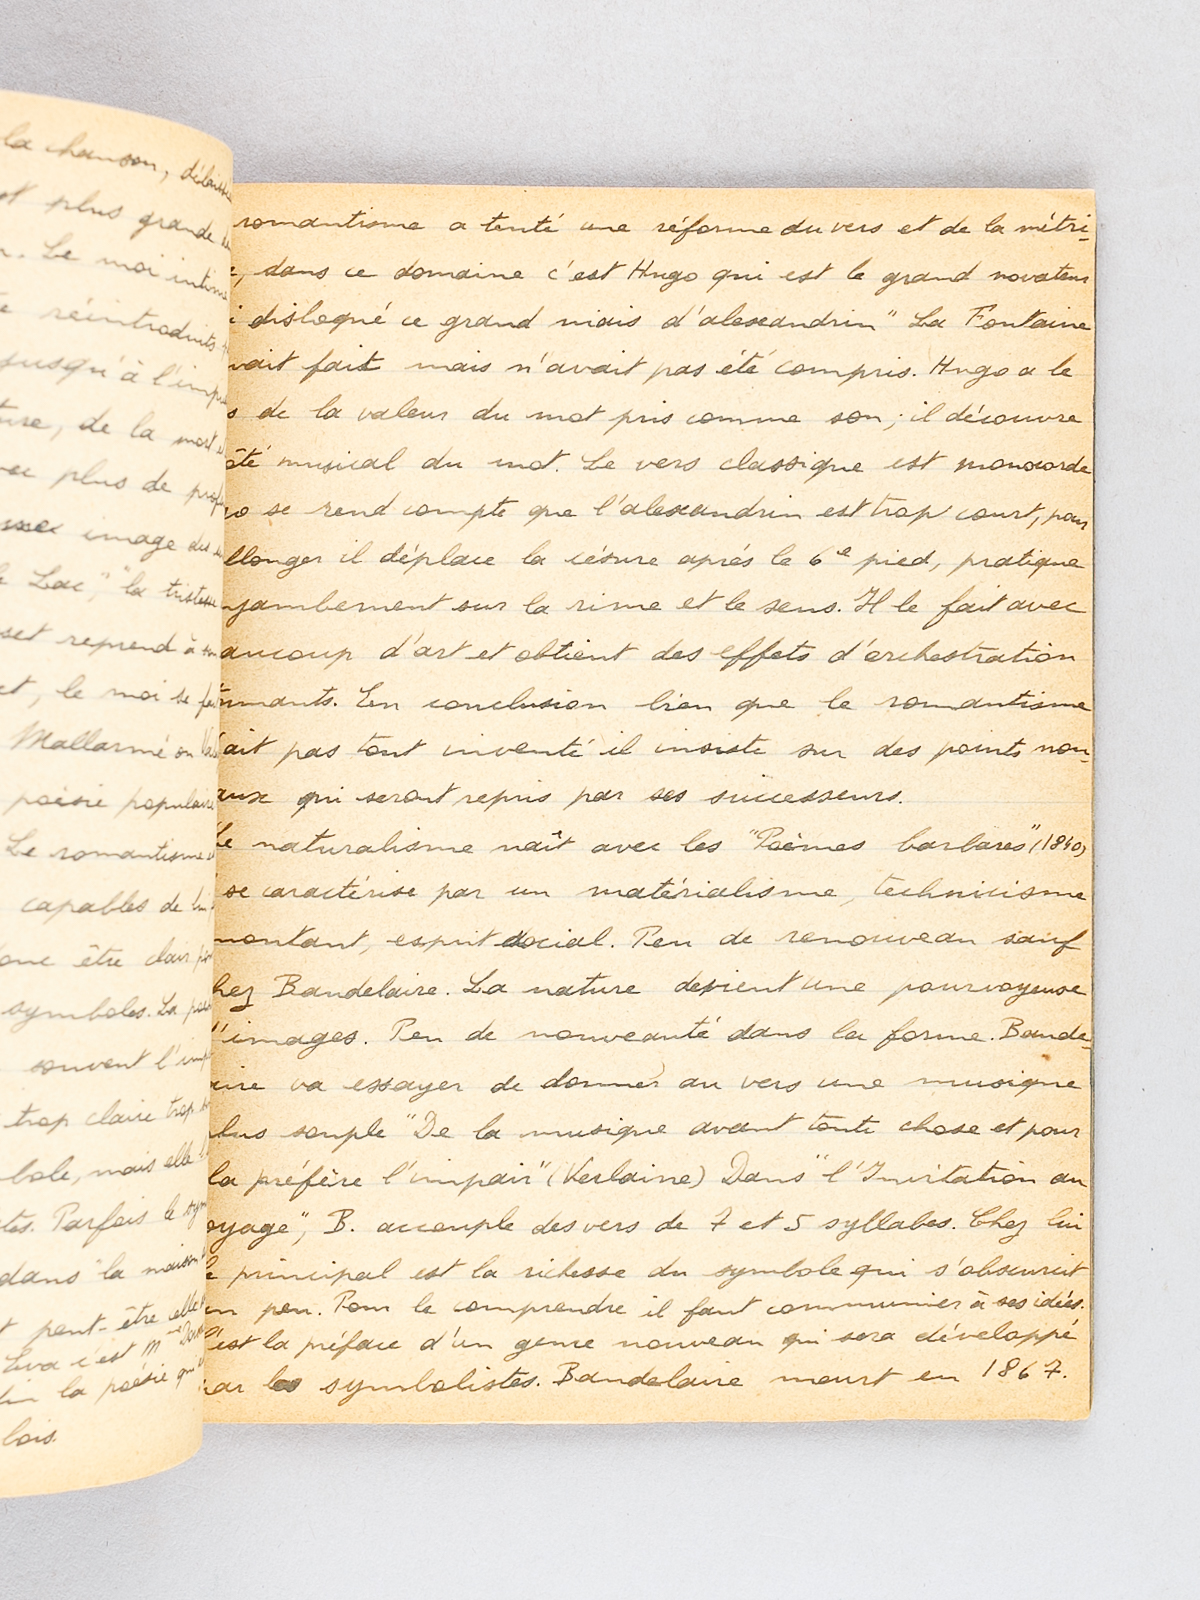 la chanson,
plus grande
Le moi intime
réintroduits
jusqu'à l'imp
de la mort
plus de prof
image du
Lac", "la tristesse
set reprend à
le moi se
Mallarmé ou
poésie populaire
Le romantisme
capables de
être clair
symboles. La
souvent l'im
trop claire trop
bole, mais elle
tes. Parfois le sym
dans "la maison
peut-être elle
Eva c'est
la poésie qu
bois.
romantisme a tenté une réforme du vers et de la métri-
, dans ce domaine c'est Hugo qui est le grand novateur
disloqué ce grand niais d'alexandrin" La Fontaine
vait fait mais n'avait pas été compris. Hugo a le
s de la valeur du mot pris comme son ; il découvre
ôté musical du mot. Le vers classique est monocorde
go se rend compte que l'alexandrin est trop court, pour
llonger il déplace la césure après le 6e pied, pratique
njambement sur la rime et le sens. Il le fait avec
aucoup d'art et obtient des effets d'orchestration
nnants. En conclusion bien que le romantisme
ait pas tout inventé il insiste sur des points nou-
aux qui seront repris par ses successeurs.
Le naturalisme naît avec les "Poèmes barbares"
se caractérise par un matérialisme, technicisme
montant, esprit social. Peu de renouveau sauf
hez Baudelaire. La nature devient une pourvoyeuse
d'images. Peu de nouveauté dans la forme. Baude-
aire va essayer de donner au vers une musique
plus souple "De la musique avant toute chose et pour
la préfère l'impair" (Verlaine) Dans "l'Invitation au
oyage", B. accouple des vers de 7 et 5 syllabes. Chez lui
le principal est la richesse du symbole qui s'obscurcit
un peu. Pour le comprendre il faut communier à ses idées.
C'est la préface d'un genre nouveau qui sera développé
par les symbolistes. Baudelaire meurt en 1867.